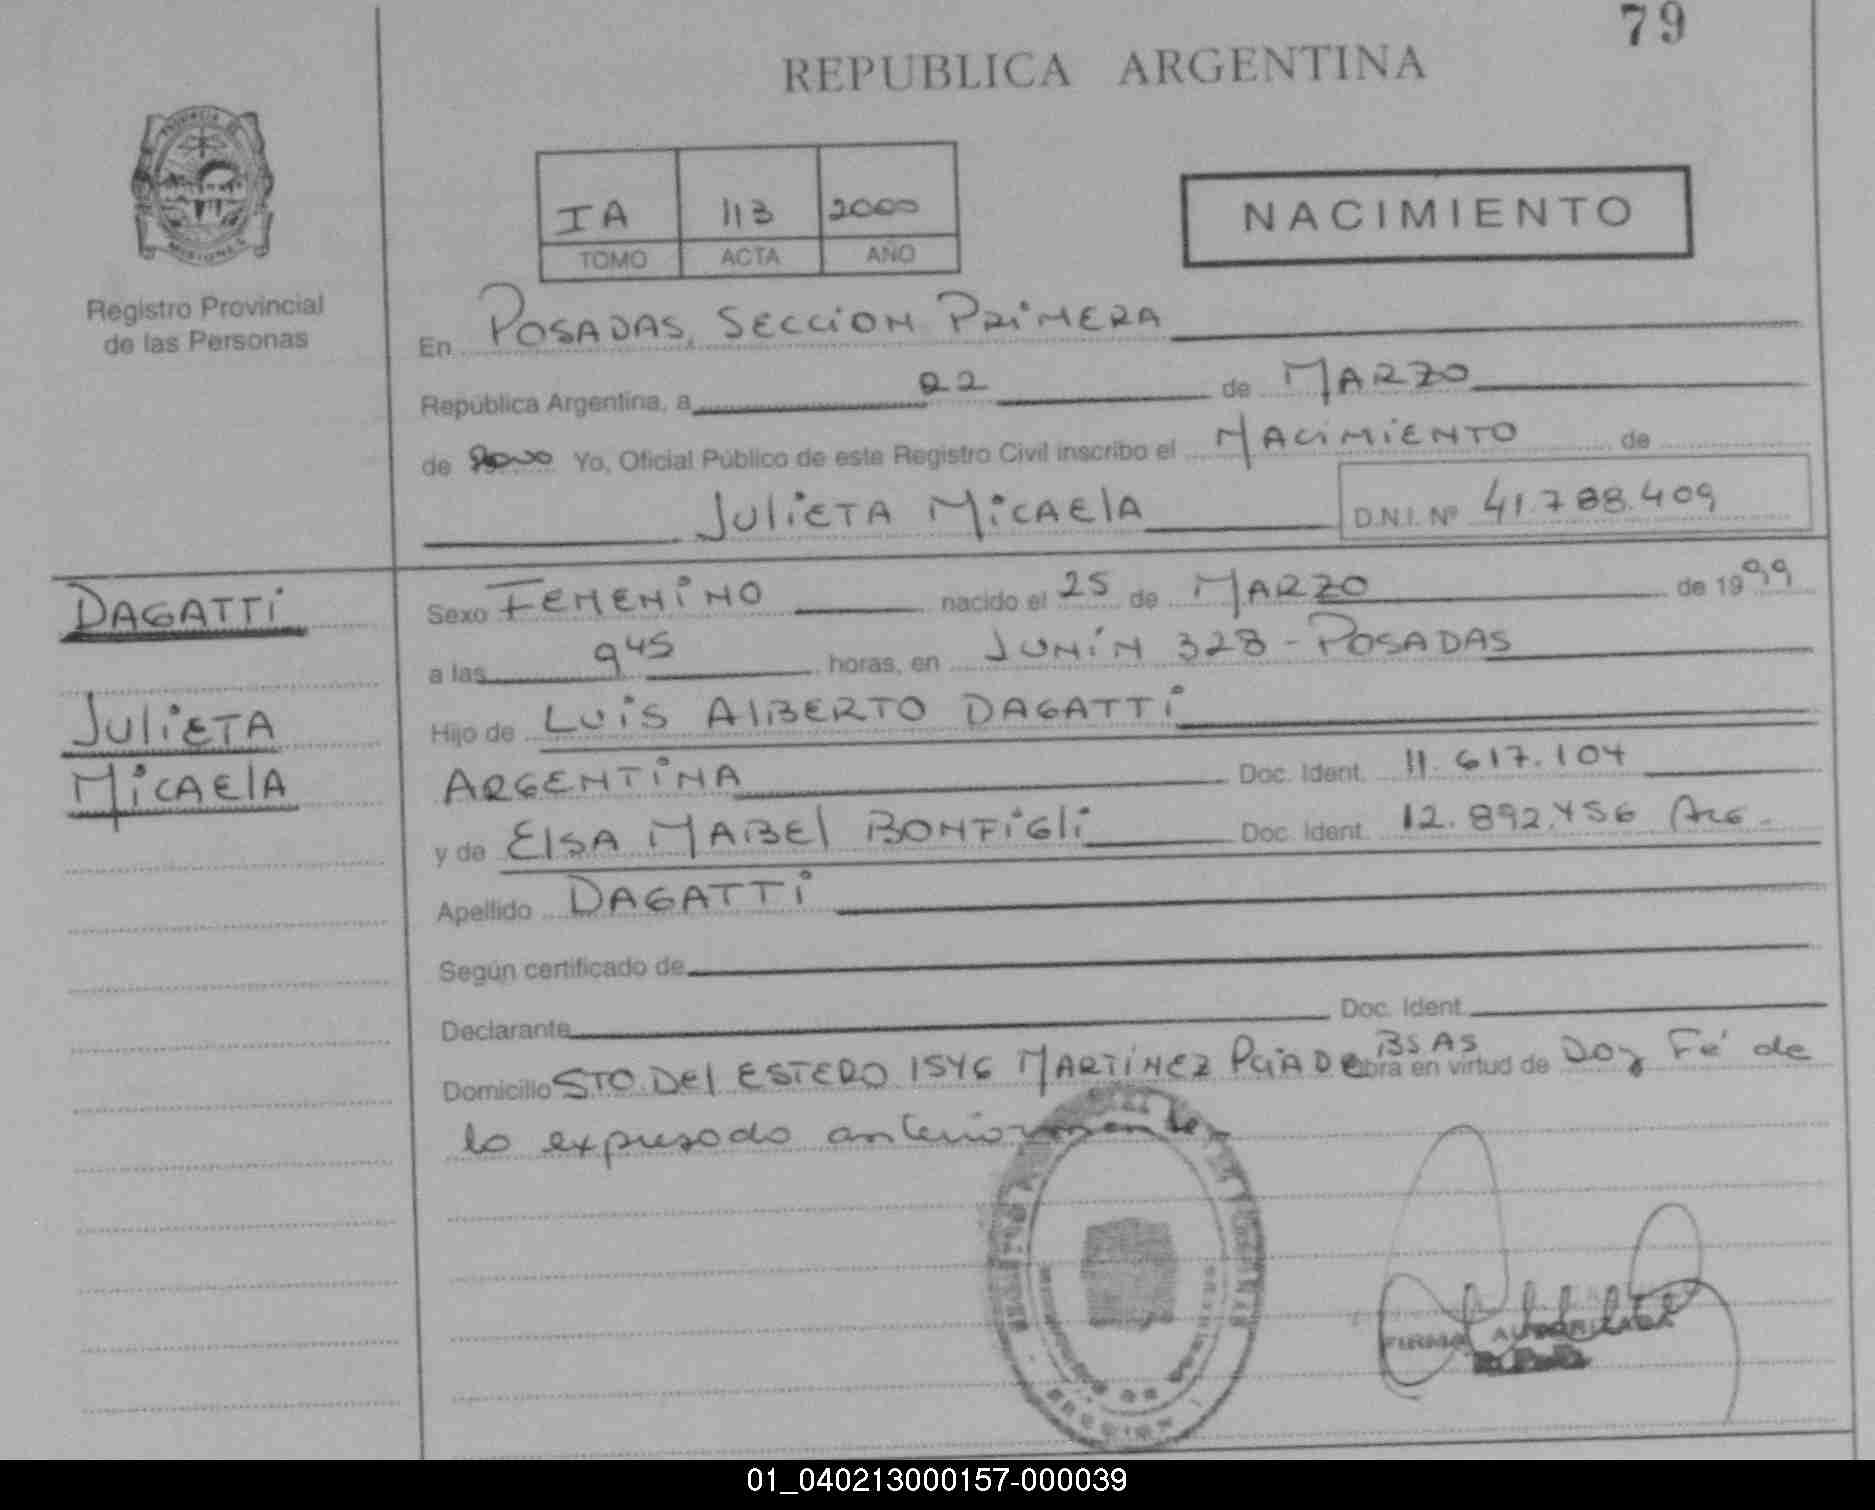 79
REPUBLICA ARGENTINA
PROVINCIA DE
MISIONES
Registro Provincial
de las Personas
IA 113 2000
TOMO ACTA AÑO
NACIMIENTO
En POSADAS, SECCION PRIMERA
República Argentina, a 22 de MARZO
de 2000 Yo, Oficial Público de este Registro Civil inscribo el NACIMIENTO de
JULIETA MICAElA D.N.I. Nº 41.788.409
DAGATTI
JULIETA
MICAElA
Sexo FEMENINO nacido el 25 de MARZO de 1999
a las 9 45 horas, en JUNÍN 328 - POSADAS
Hijo de LUIS AlBERTO DAGATTI
ARGENTINA Doc. Ident. 11.617.104
y de ElSA MABEl BONFIGlI Doc. Ident. 12.892.456 ARG.
Apellido DAGATTI
Según certificado de
Declarante Doc. Ident.
Domicilio STO. DEl ESTERO 1546 MARTÍNEZ PCIA DE BS AS obra en virtud de Doy Fé de
lo expresado anteriormente.
FIRMA AUTORIZADA
01_040213000157-000039